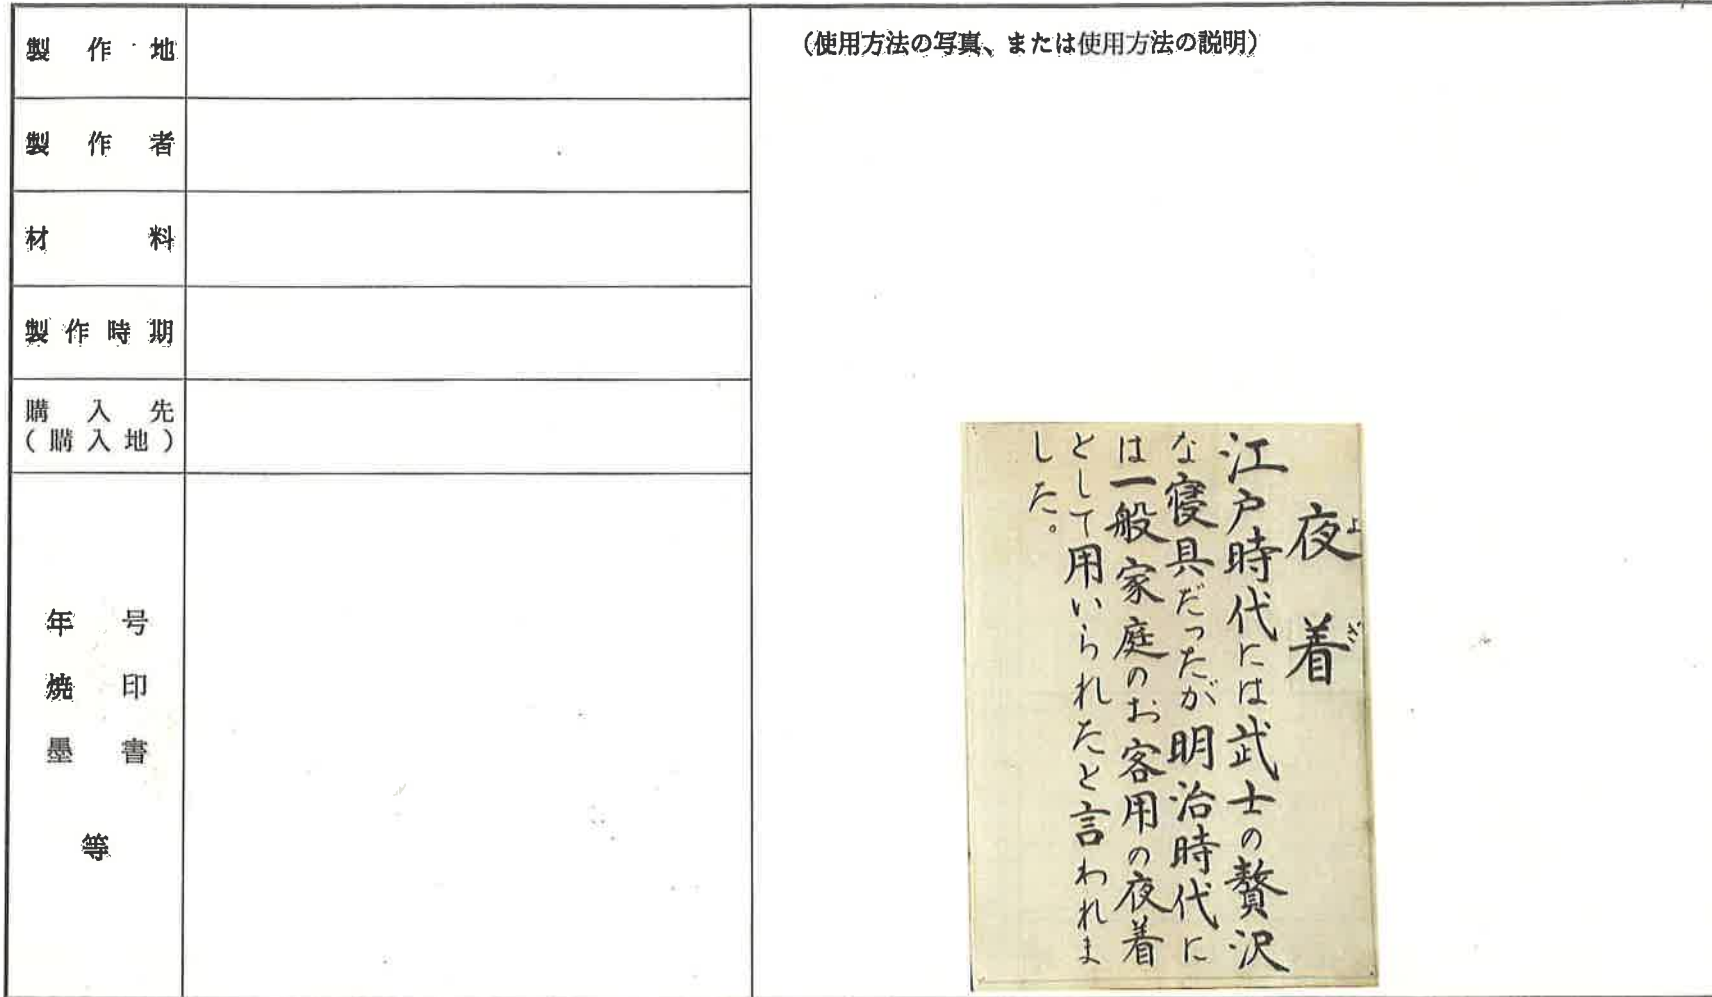 製作地
製作者
材料
製作時期
購入先
(購入地)
年号
焼印
墨書
等
(使用方法の写真、または使用方法の説明)
夜着
よぎ
江戸時代には武士の贅沢
な寝具だったが明治時代に
は一般家庭のお客用の夜着
として用いられたと言われま
した。